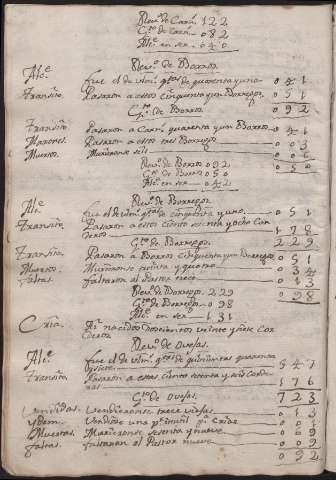 Rezº de Carnˢ 122
Gᵗᵒ de Carnˢ 082
Alcᵉ en ser 040
Rezº de Borros
Alcᵉ fue el de de quarenta y uno 041
Transito Pasaron a estos cinquenta y un Borregos 051
Gᵗᵒ de Borros 092
Transito Pasaron a Carnˢ quarenta y un Borros 041
Marones a estos tres Borregos 003
Muertos Murieronse seis 006
050
Rezº de Borros 092
Gᵗᵒ de Borros 050
Alcᵉ en ser 042
Rezº de Borregos
Alcᵉ fue el de de cinquenta y uno 051
Transito Pasaron a estos ciento setenta y ocho Corderos 178
Gᵗᵒ de Borregos 229
Transito Pasaron a Borros cinquenta y un Borregos 051
Muertos Murieronse treinta y quatro 034
faltas faltaron al Pastor trece 013
098
Rezº de Borregos 229
Gᵗᵒ de Borregos 098
Alcᵉ en ser 131
Cria nacidos doscientos veinte y siete Corderos
Rezº de Ovejas
Alcᵉ fue el de de quinientas quarenta y siete 547
Transito Pasaron a estas ciento setenta y seis Corderas 176
Gᵗᵒ de Ovejas 723
Vendidas Vendieronse trece viejas 013
Ydem Vendiose una pʳ inutil pᵃ Criar 001
Muertas Murieronse sesenta y nueve 069
faltas faltaron al Pastor nueve 009
092